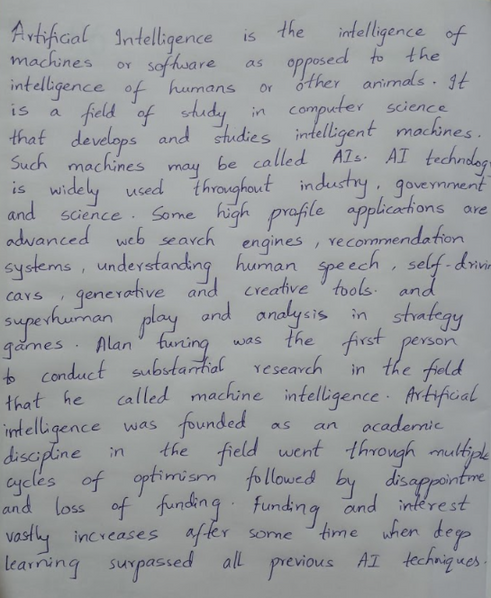 Artificial Intelligence is the intelligence of
machines or software as opposed to the
intelligence of humans or other animals. It
is a field of study in computer science
that develops and studies intelligent machines.
Such machines may be called AIs. AI technolog
is widely used throughout industry, government
and science. Some high profile applications are
advanced web search engines, recommendation
systems, understanding human speech, self-drivin
cars, generative and creative tools. and
superhuman play and analysis in strategy
games. Alan tuning was the first person
to conduct substantial research in the field
that he called machine intelligence. Artificial
intelligence was founded as an academic
discipline in the field went through multiple
cycles of optimism followed by disappointme
and loss of funding. Funding and interest
vastly increases after some time when deep
learning surpassed all previous AI techniques.